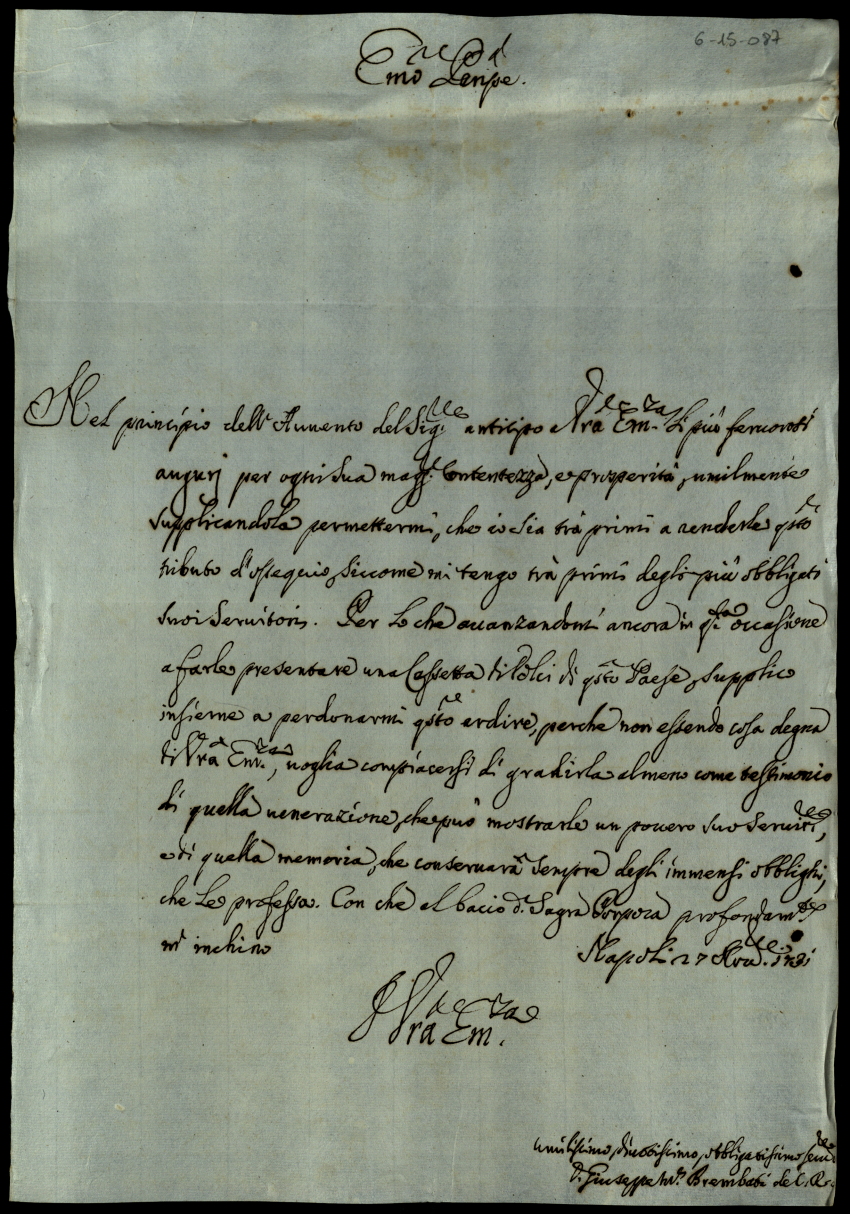 6-15-087
Em̃o Prñpe.
Nel principio dell' Auuento del Sig.re anticipo a Vrã Em.za li più feruorosi
augurj per ogni sua magg. Contentezza, e prosperità, umilmente
supplicandola permettermi, che io sia trà primi a renderle qsto
tributo d'ossequio, siccome mi tengo trà primi degli più obbligati
suoi Seruitori. Per lo che auanzandomi ancora in qsta occasione
a farle presentare una Cassetta di Dolci di qsto Paese, supplico
insieme a perdonarmi qsto ardire, perche non essendo cosa degna
di Vrã Em.za, uoglia compiacersi di gradirla almeno come testimonio
di quella uenerazione, che può mostrarle un pouero suo Seruit.re,
e di quella memoria, che conseruarà sempre degli immensi obblighi,
che Le professa. Con che al bacio d. Sagra Porpora profondam.te
m' inchino Napoli 27 Nou.
Vrã Em.za
umilissimo, diuotissimo, obbligatissimo seru.
D. Giuseppe M. Brembati de C. R.